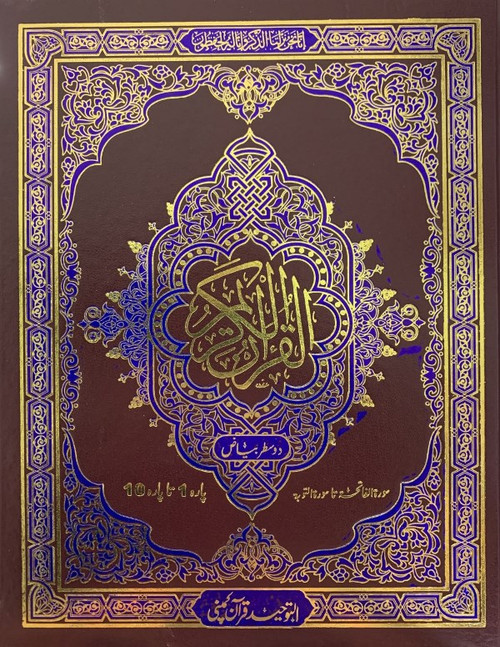 إنا نحن نزلنا الذكر وإنا له لحافظون
القرآن الكريم
دو سطر بیاض
سورۃ الفاتحۃ تا سورۃ التوبہ
پارہ 1 تا پارہ 10
التوحید قرآن کمپنی